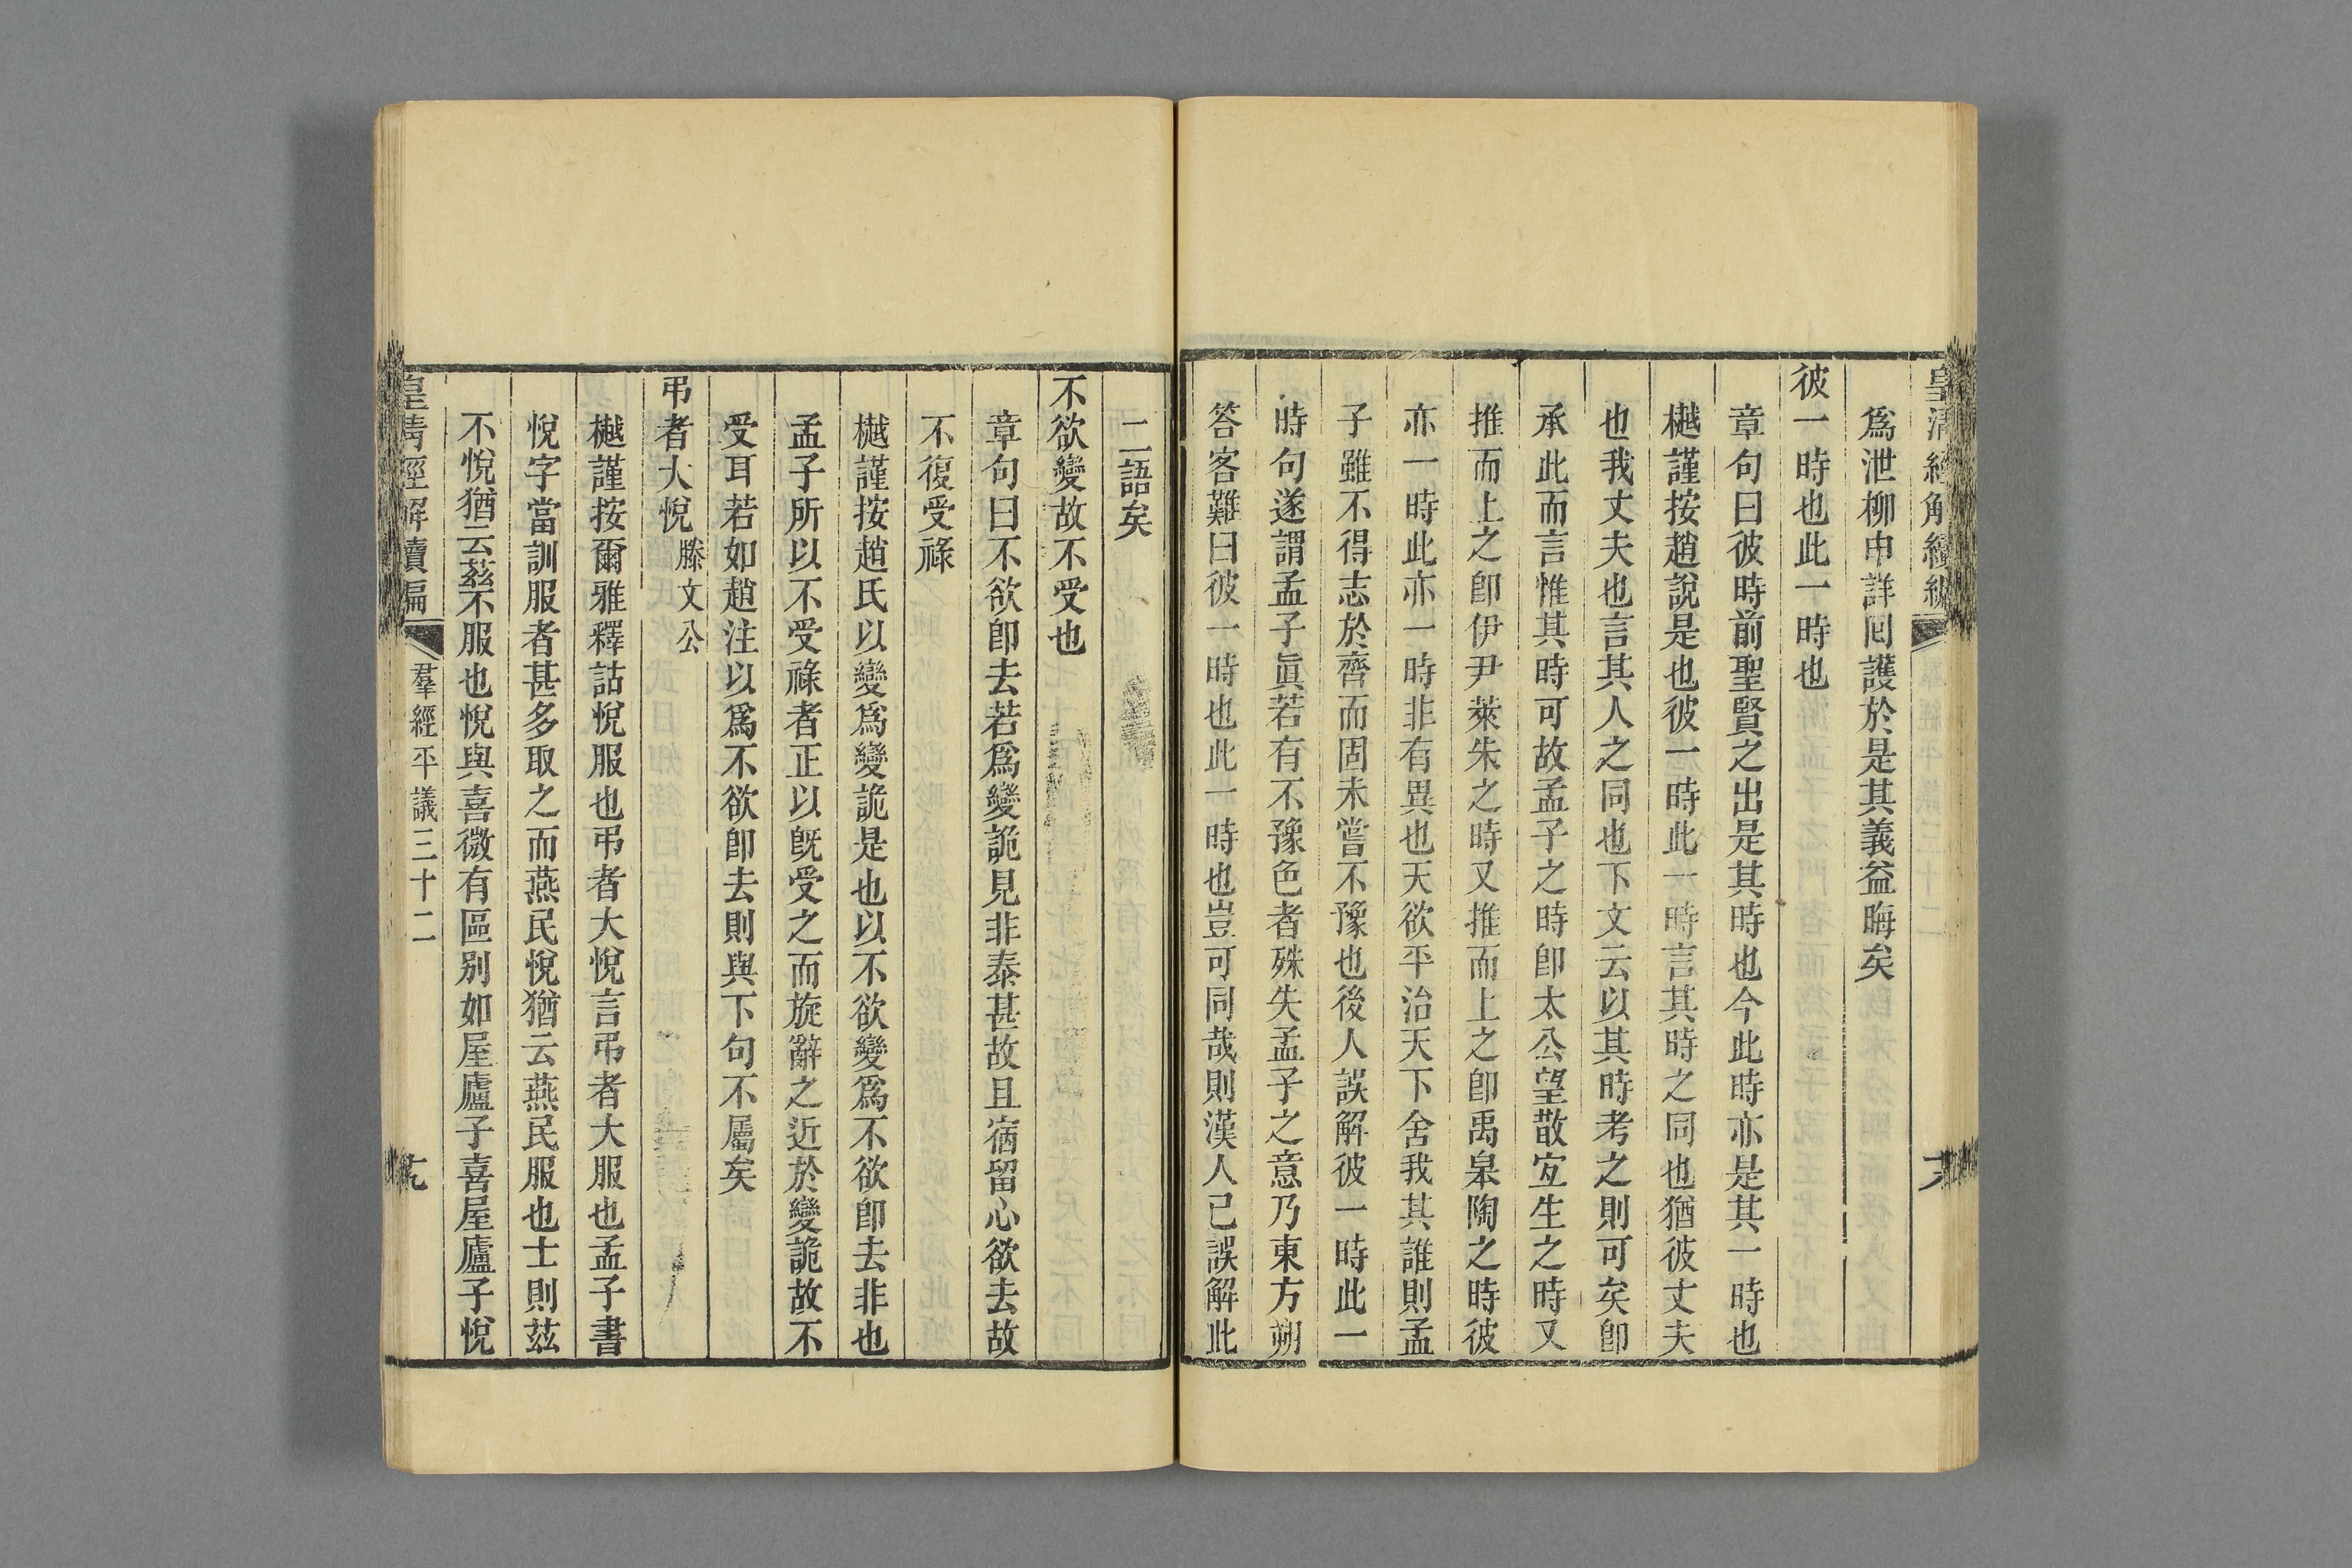 皇清經解續編
爲泄柳申詳回護於是其義益晦矣
彼一時也此一時也
章句曰彼時前聖賢之出是其時也今此時亦是其一時也
樾謹按趙說是也彼一時此一時言其時之同也猶彼丈夫
也我丈夫也言其人之同也下文云以其時考之則可矣卽
承此而言惟其時可故孟子之時卽太公望散宐生之時又
推而上之卽伊尹萊朱之時又推而上之卽禹皋陶之時彼
亦一時此亦一時非有異也天欲平治天下舍我其誰則孟
子雖不得志於齊而固未嘗不豫也後人誤解彼一時此一
時句遂謂孟子眞若有不豫色者殊失孟子之意乃東方朔
答客難曰彼一時也此一時也豈可同哉則漢人已誤解此
二語矣
不欲變故不受也
章句曰不欲卽去若爲變詭見非泰甚故且宿留心欲去故
不復受祿
樾謹按趙氏以變爲變詭是也以不欲變爲不欲卽去非也
孟子所以不受祿者正以旣受之而旋辭之近於變詭故不
受耳若如趙注以爲不欲卽去則與下句不屬矣
弔者大悅 滕文公
樾謹按爾雅釋詁悅服也弔者大悅言弔者大服也孟子書
悅字當訓服者甚多取之而燕民悅猶云燕民服也士則茲
不悅猶云茲不服也悅與喜微有區別如屋廬子喜屋廬子悅
皇清經解續編 羣經平議三十二